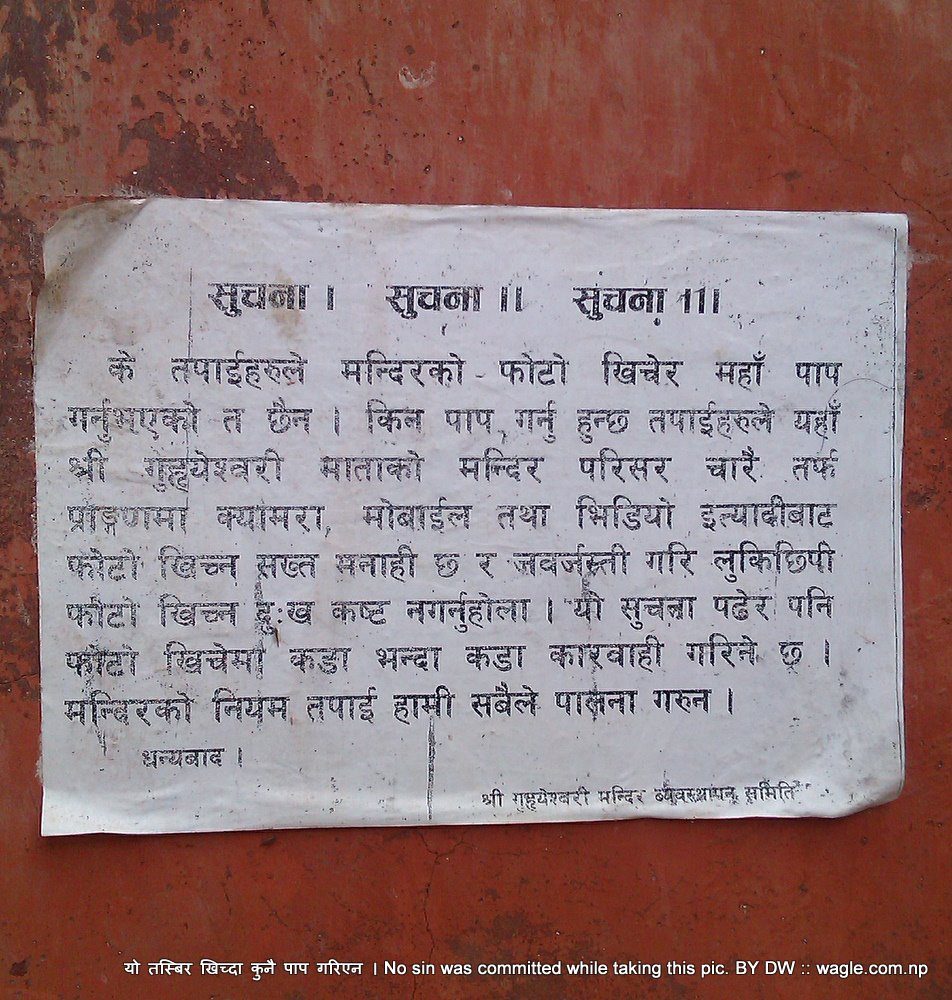 सुचना । सुचना ।। सुचना ।।।
के तपाईहरुले मन्दिरको फोटो खिचेर महाँ पाप
गर्नुभएको त छैन । किन पाप गर्नु हुन्छ तपाईहरुले यहाँ
श्री गुह्येश्वरी माताको मन्दिर परिसर चारै तर्फ
प्राङ्गणमा क्यामरा, मोबाईल तथा भिडियो इत्यादीबाट
फोटो खिच्न सख्त मनाही छ र जवर्जस्ती गरि लुकिछिपी
फोटो खिच्न दुःख कष्ट नगर्नुहोला । यो सुचना पढेर पनि
फोटो खिचेमा कडा भन्दा कडा कारवाही गरिने छ ।
मन्दिरको नियम तपाई हामी सबैले पालना गरुन ।
धन्यबाद ।
श्री गुह्येश्वरी मन्दिर ब्यवस्थापन समिति
यो तस्बिर खिच्दा कुनै पाप गरिएन । No sin was committed while taking this pic. BY DW :: wagle.com.np